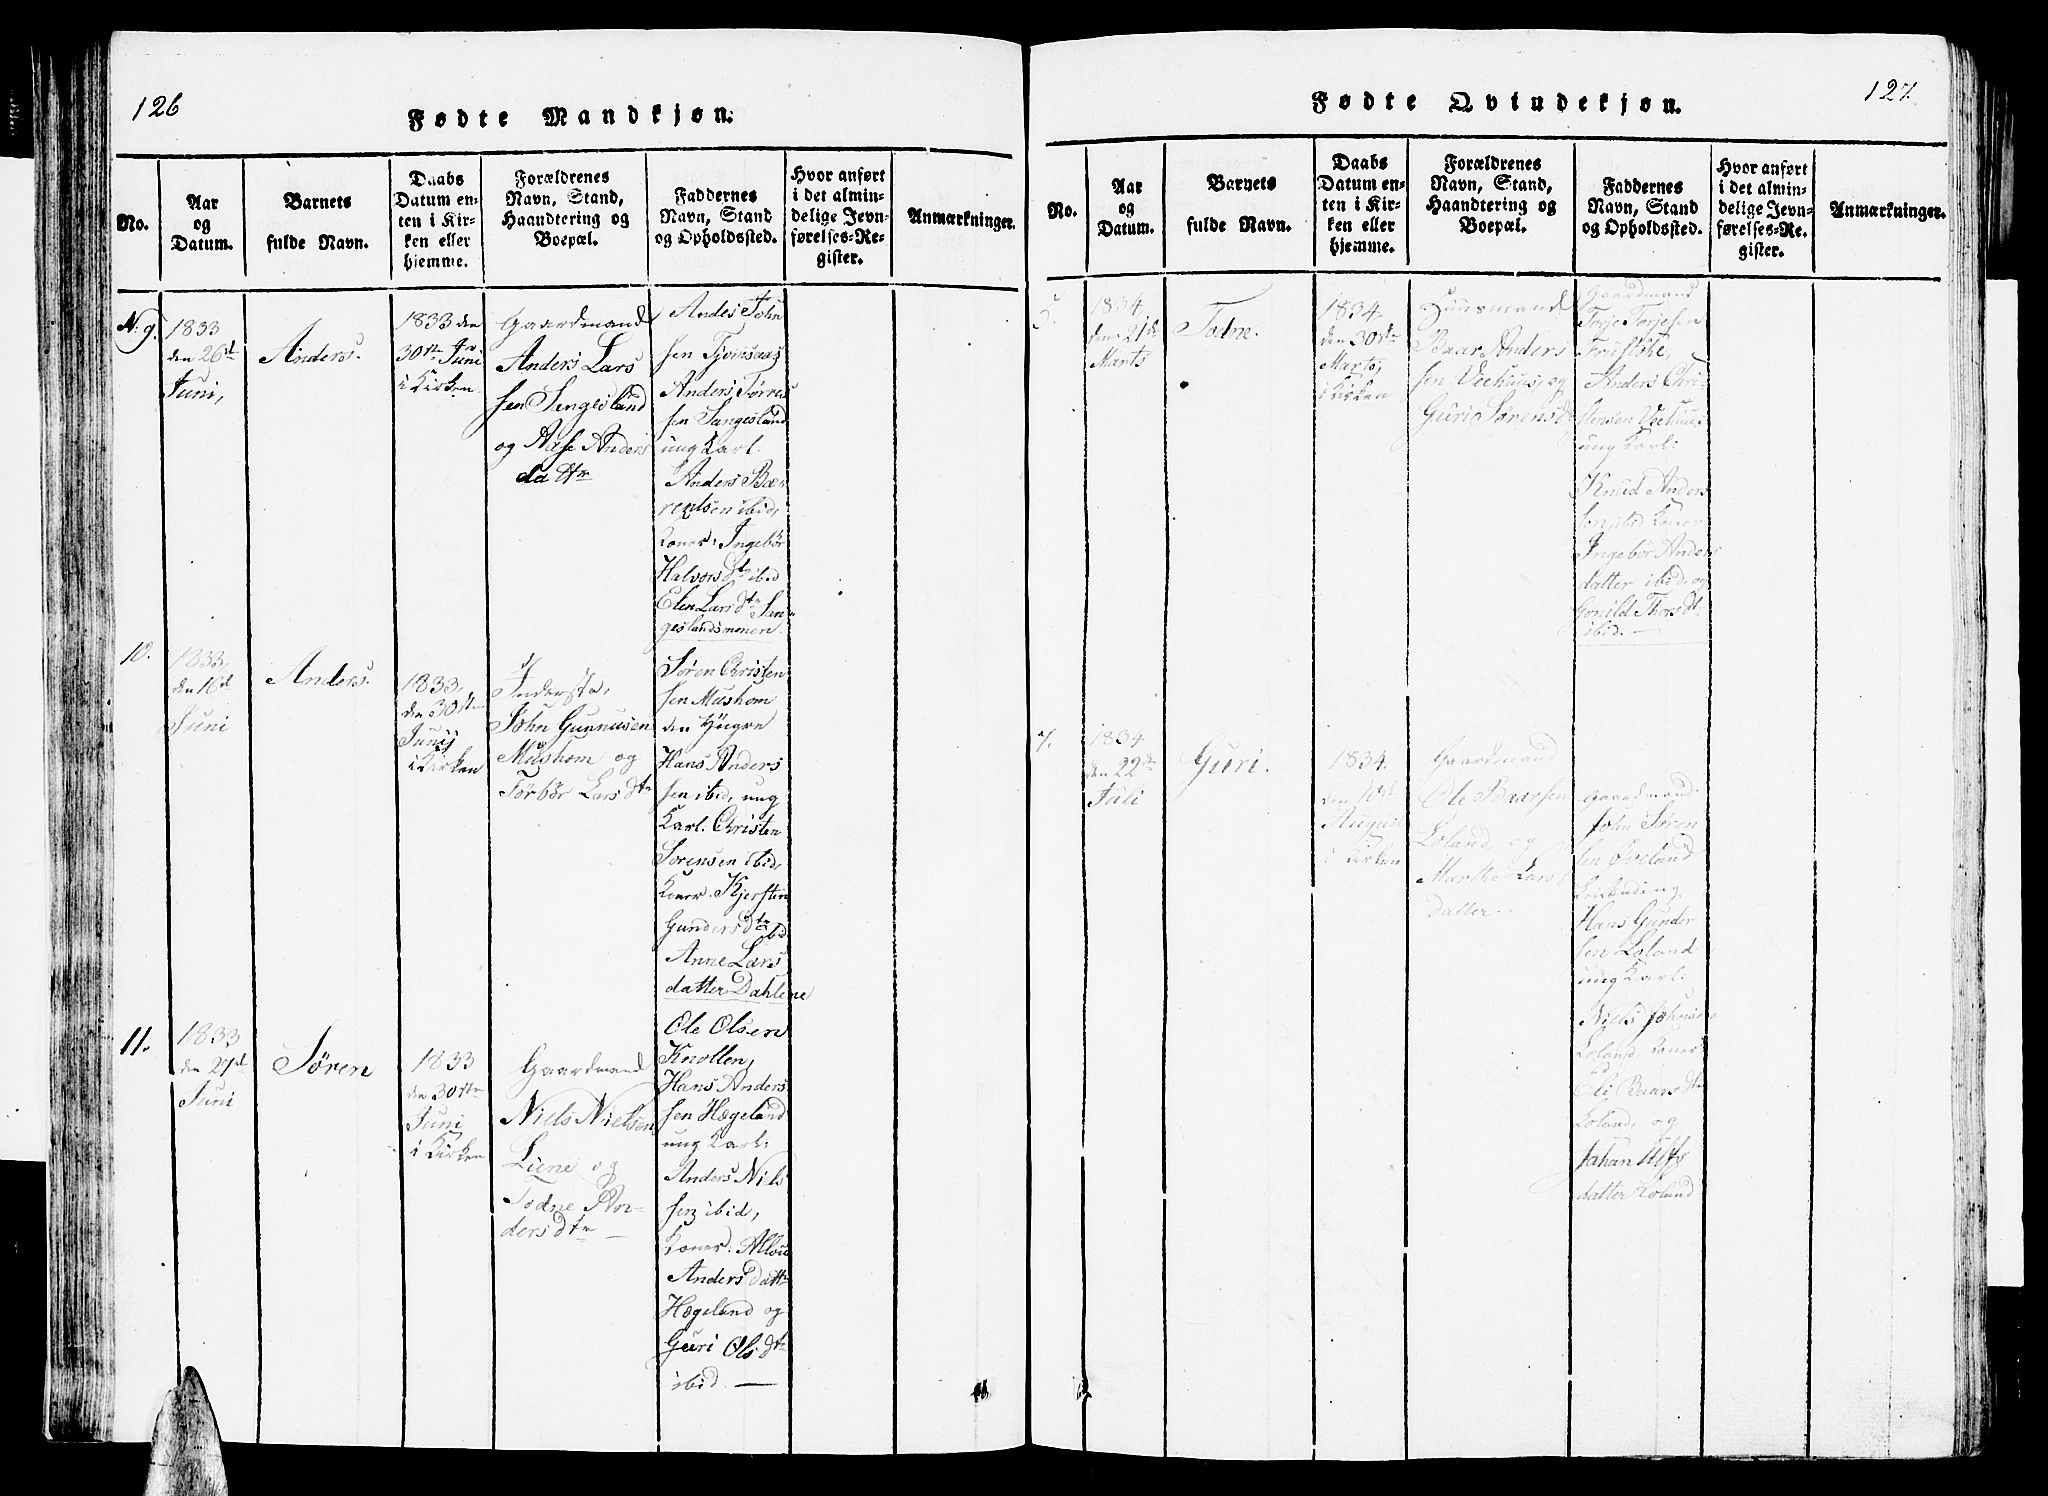 126
Fødte Mandkjøn.
No.
Aar
og
Datum.
Barnets
fulde Navn.
Daabs
Datum en-
ten i Kir-
ken eller
hjemme.
Forældrenes
Navn, Stand,
Haandtering og
Boepæl.
Faddernes
Navn, Stand
og Opholdssted.
Hvor anført
i det almin-
delige Jevn-
førelses-Re-
gister.
Anmærkninger.
N: 9.
1833
den 26d
Juni,
Anders.
1833 den
30te Juni
i Kirken
Gaardmand
Anders Lars
sen Sengesland
og Aase Anders
dattr
Andes John
sen Tjomsaas
Anders Tørres
sen Sangesland
ung Karl.
Anders Bær
rentsen ibid,
Koner: Ingebør
Halvors dtr ibid
Elen Lars dtr Sen-
geslandsmonen.
10.
1833
den 16d
Juni
Anders.
1833,
den 30te
Junij
i Kirken
Inderste,
John Gunnusen
Mushom og
Torbør Lars dtr
Søren Christen
sen Mushom
den Yngre
Hans Anders
sen ibid, ung
Karl. Christen
Sørensen ibid,
Koner. Kjersten
Gunders dtr ibid
Anne Lars
datter Dahlene
11.
1833
den 27d
Juni
Søren
1833
den 30te
Juni
i Kirken
Gaardmand
Niels Nielsen
Liene og
Todne An-
ders dtr
Ole Olsen
Knollen,
Hans Anders
sen Hægeland
ung Karl:
Anders Nils
sen ibid,
Koner.
Anders dattr
Hægeland og
Guri Ols dtr
ibid.
127.
Fødte Qvindekjøn.
No.
Aar
og
Datum.
Barnets
fulde Navn.
Daabs
Datum en-
ten i Kir-
ken eller
hjemme.
Forældrenes
Navn, Stand,
Haandtering og
Boepæl.
Faddernes
Navn, Stand
og Opholdssted.
Hvor anført
i det almin-
delige Jevn-
førelses-Re-
gister.
Anmærkninger.
5.
1834
den 21de
Marts
Todne.
1834
den 30te
Marts,
i Kirken
Huusmand
Baar Anders
sen Veehuus, og
Guri Sørens dt
Gaardmand
Torje Torjesen
Anders Chri-
stensen Veehuus
ung Karl:
Knud Anders
sen, ibid Koner
Ingebør Anders
datter ibid, og
Gonild Thors dt
ibid.
7.
1834
den 22de
Juli
Guri.
1834
den 10de
August
i Kirken
Gaardmand
Ole Baarsen
Loland, og
Marthe Lars
datter.
Gaardmand
John Søren
sen Øveland
Hans Gunder
sen Loland
ung Karl.
Niels Johnsen
Loland, Koner
Eli Baars dtr
Loland, og
Johan
datter Loland